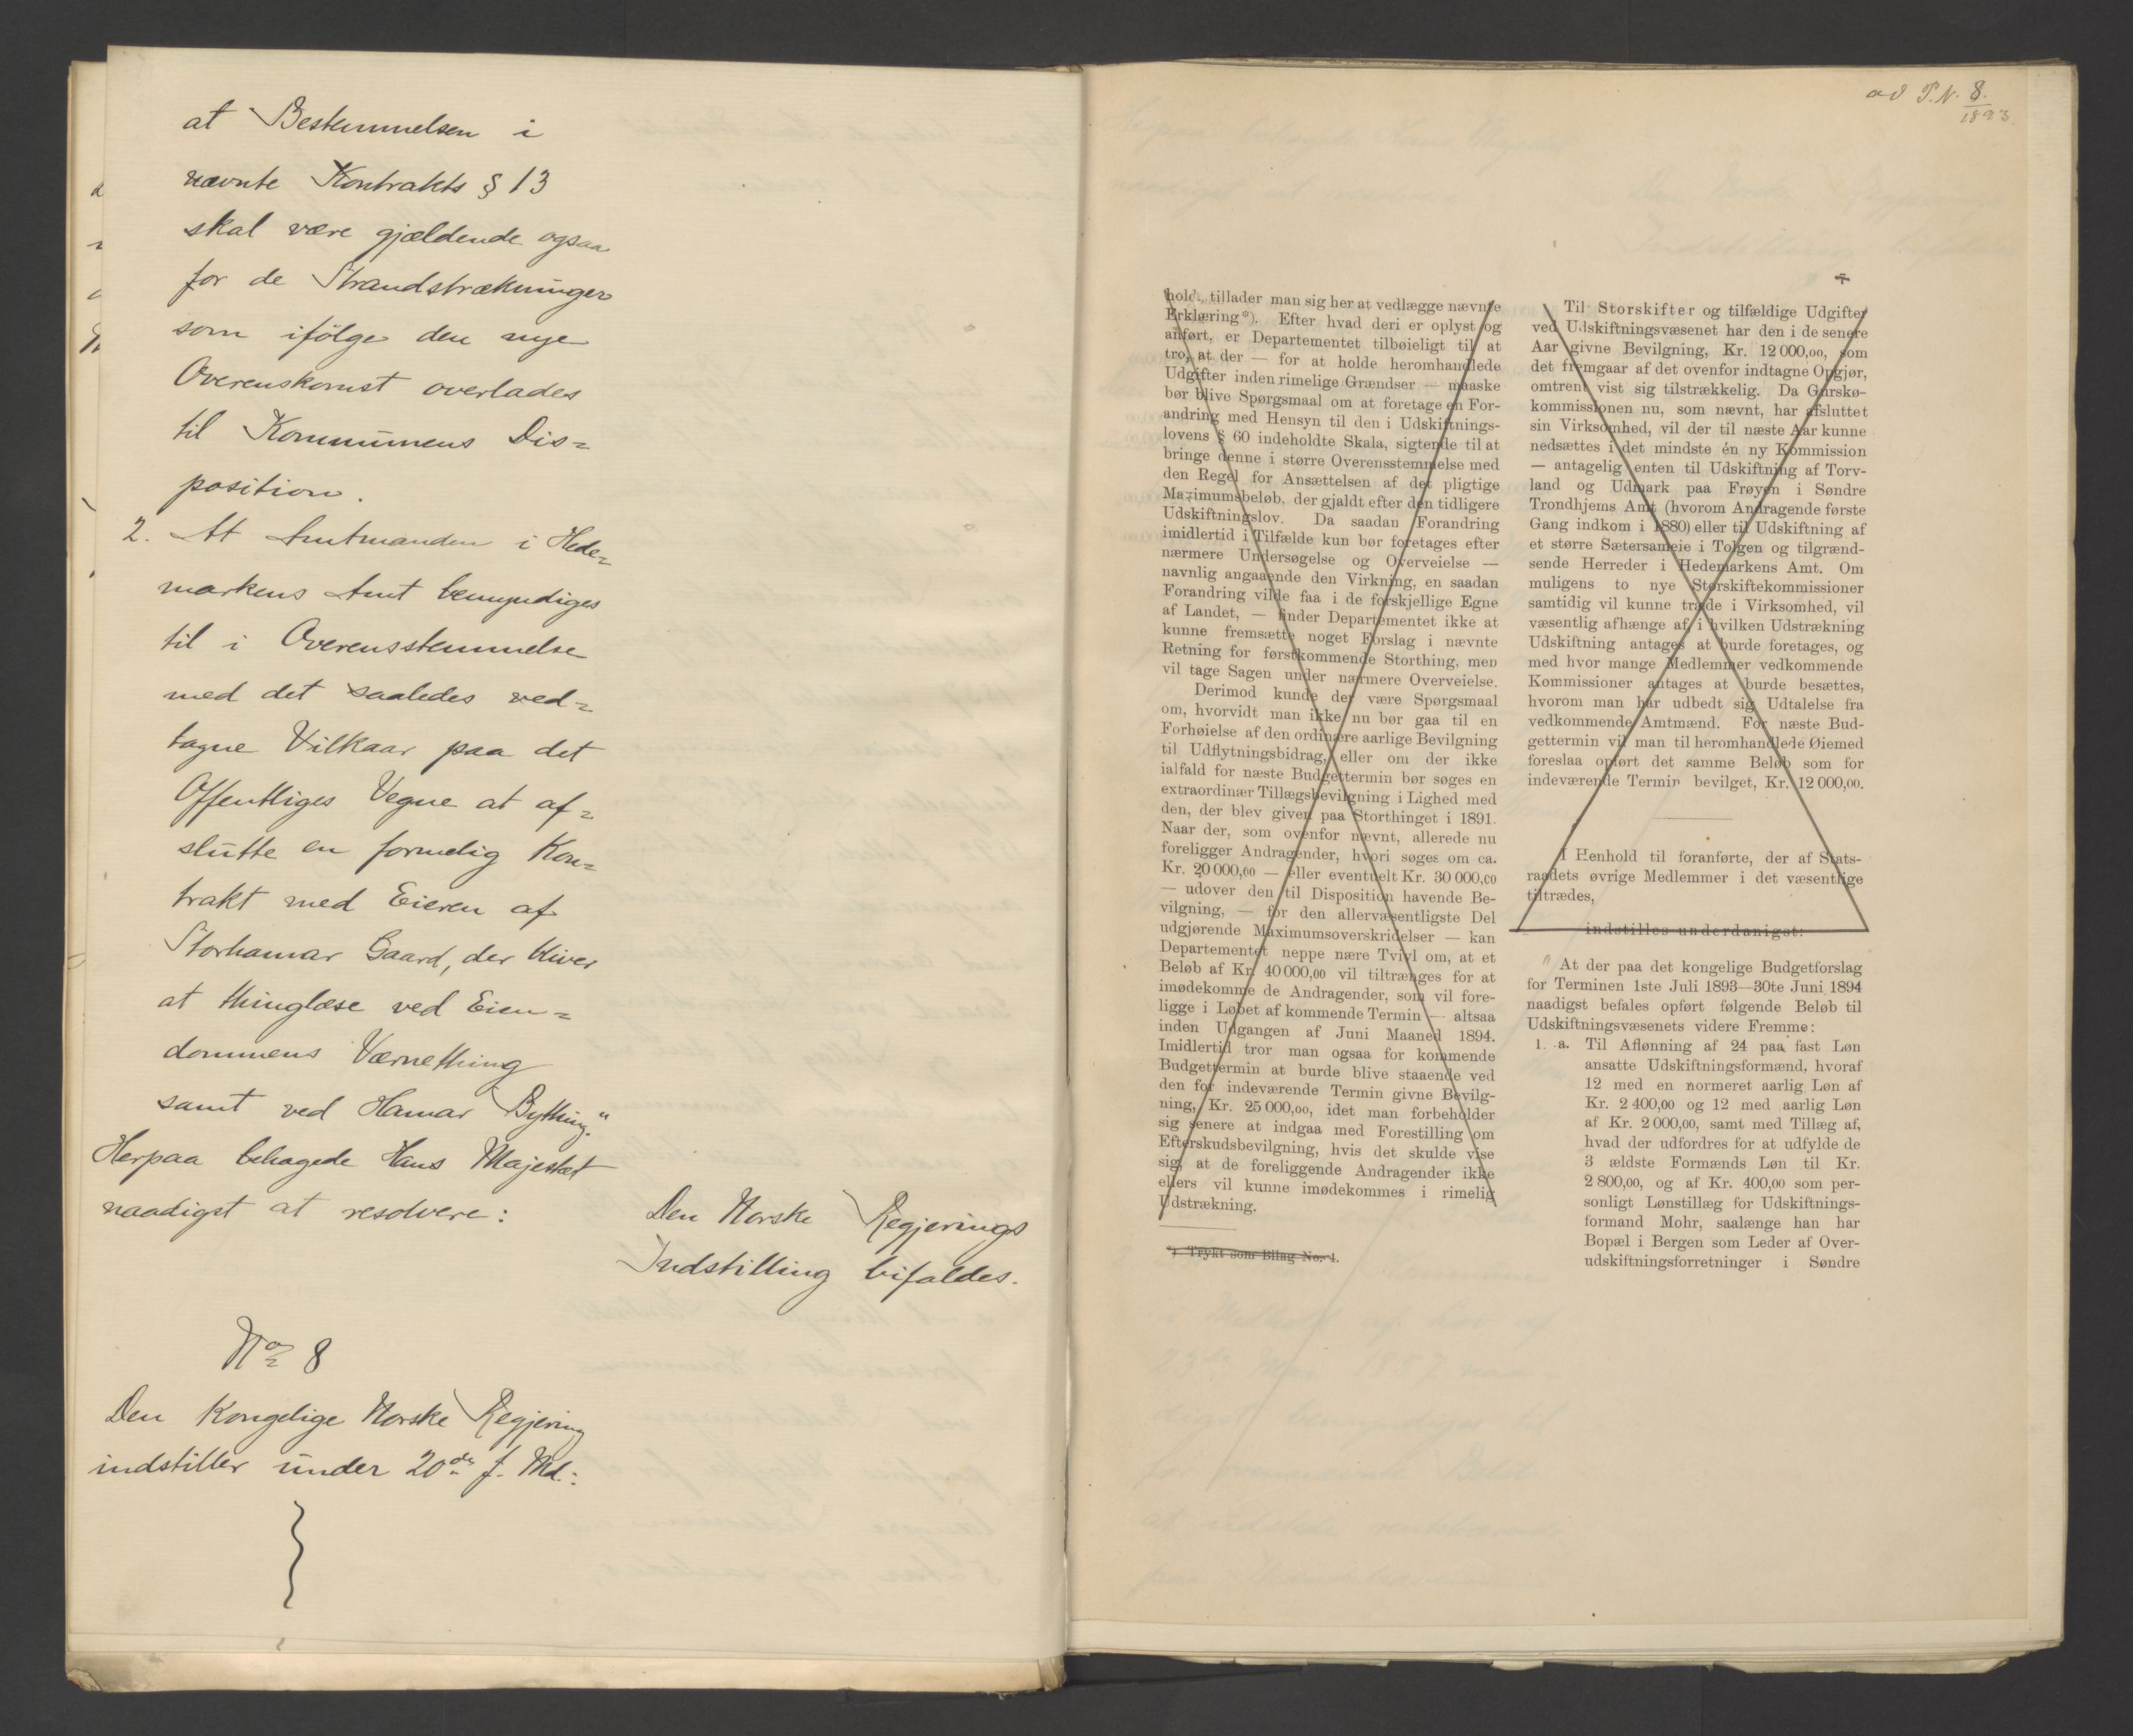 at Bestemmelsen i
nævnte Kontrakts § 13
skal være gjældende ogsaa
for de Strandstrækninger
som ifölge den nye
Overenskomst overlades
til Kommunens Dis=
position.
2. At Amtmanden i Hede=
markens Amt bemyndiges
til i Overensstemmelse
med det saaledes ved=
tagne Vilkaar paa det
Offentliges Vegne at af=
slutte en formelig Kon=
trakt med Eieren af
Storhamar Gaard, der bliver
at thinglæse ved Eien=
dommens Værnething
samt ved Hamar Bything."
Herpaa behagede Hans Majestæt
naadigst at resolvere:
Den Norske Regjerings
Indstilling bifaldes.
No 8
Den Kongelige Norske Regjering
indstiller under 20de f. Md.:
ad P.N. 8.
1893
hold, tillader man sig her at vedlægge nævnte
Erklæring*). Efter hvad deri er oplyst og
anført, er Departementet tilbøieligt til at
tro, at der — for at holde heromhandlede
Udgifter inden rimelige Grændser — maaske
bør blive Spørgsmaal om at foretage en For-
andring med Hensyn til den i Udskiftnings-
lovens § 60 indeholdte Skala, sigtende til at
bringe denne i større Overensstemmelse med
den Regel for Ansættelsen af det pligtige
Maximumsbeløb, der gjaldt efter den tidligere
Udskiftningslov. Da saadan Forandring
imidlertid i Tilfælde kun bør foretages efter
nærmere Undersøgelse og Overveielse —
navnlig angaaende den Virkning, en saadan
Forandring vilde faa i de forskjellige Egne
af Landet, — finder Departementet ikke at
kunne fremsætte noget Forslag i nævnte
Retning for førstkommende Storthing, men
vil tage Sagen under nærmere Overveielse.
Derimod kunde der være Spørgsmaal
om, hvorvidt man ikke nu bør gaa til en
Forhøielse af den ordinære aarlige Bevilgning
til Udflytningsbidrag, eller om der ikke
ialfald for næste Budgettermin bør søges en
extraordinær Tillægsbevilgning i Lighed med
den, der blev given paa Storthinget i 1891.
Naar der, som ovenfor nævnt, allerede nu
foreligger Andragender, hvori søges om ca.
Kr. 20 000,00 — eller eventuelt Kr. 30 000,00
— udover den til Disposition havende Be-
vilgning, — for den allervæsentligste Del
udgjørende Maximumsoverskridelser — kan
Departementet neppe nære Tvivl om, at et
Beløb af Kr. 40 000,00 vil tiltrænges for at
imødekomme de Andragender, som vil fore-
ligge i Løbet af kommende Termin — altsaa
inden Udgangen af Juni Maaned 1894.
Imidlertid tror man ogsaa for kommende
Budgettermin at burde blive staaende ved
den for indeværende Termin givne Bevilg-
ning, Kr. 25 000,00, idet man forbeholder
sig senere at indgaa med Forestilling om
Efterskudsbevilgning, hvis det skulde vise
sig, at de foreliggende Andragender ikke
ellers vil kunne imødekommes i rimelig
Udstrækning.
*) Trykt som Bilag No. 4.
Til Storskifter og tilfældige Udgifter
ved Udskiftningsvæsenet har den i de senere
Aar givne Bevilgning, Kr. 12 000,00, som
det fremgaar af det ovenfor indtagne Opgjør,
omtrent vist sig tilstrækkelig. Da Gurskø-
kommissionen nu, som nævnt, har afsluttet
sin Virksomhed, vil der til næste Aar kunne
nedsættes i det mindste én ny Kommission
— antagelig enten til Udskiftning af Torv-
land og Udmark paa Frøyen i Søndre
Trondhjems Amt (hvorom Andragende første
Gang indkom i 1880) eller til Udskiftning af
et større Sætersameie i Tolgen og tilgrænd-
sende Herreder i Hedemarkens Amt. Om
muligens to nye Storskiftekommissioner
samtidig vil kunne træde i Virksomhed, vil
væsentlig afhænge af, i hvilken Udstrækning
Udskiftning antages at burde foretages, og
med hvor mange Medlemmer vedkommende
Kommissioner antages at burde besættes,
hvorom man har udbedt sig Udtalelse fra
vedkommende Amtmænd. For næste Bud-
gettermin vil man til heromhandlede Øiemed
foreslaa opført det samme Beløb som for
indeværende Termin bevilget, Kr. 12 000,00.
I Henhold til foranførte, der af Stats-
raadets øvrige Medlemmer i det væsentlige
tiltrædes,
indstilles underdanigst:
"At der paa det kongelige Budgetforslag
for Terminen 1ste Juli 1893—30te Juni 1894
naadigst befales opført følgende Beløb til
Udskiftningsvæsenets videre Fremme:
1. a. Til Aflønning af 24 paa fast Løn
ansatte Udskiftningsformænd, hvoraf
12 med en normeret aarlig Løn af
Kr. 2 400,00 og 12 med aarlig Løn
af Kr. 2 000,00, samt med Tillæg af,
hvad der udfordres for at udfylde de
3 ældste Formænds Løn til Kr.
2 800,00, og af Kr. 400,00 som per-
sonligt Lønstillæg for Udskiftnings-
formand Mohr, saalænge han har
Bopæl i Bergen som Leder af Over-
udskiftningsforretninger i Søndre